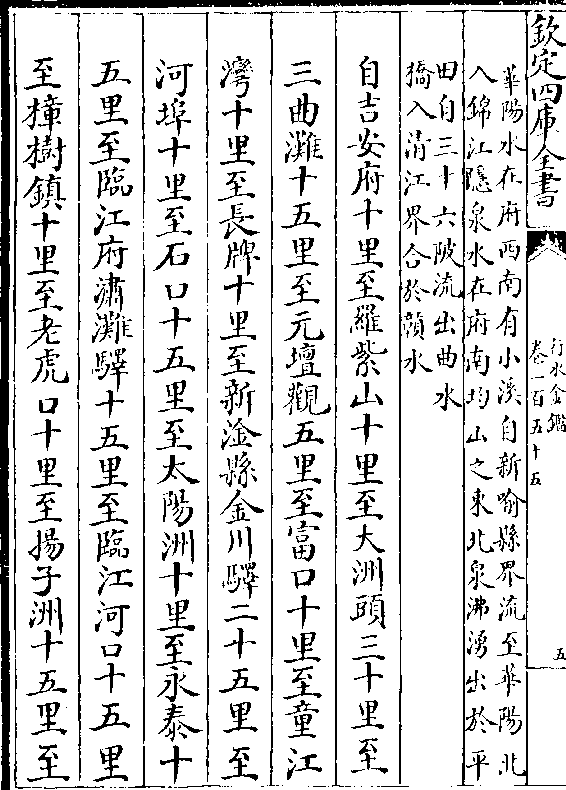 欽定四庫全書
行水金鑑
卷一百五十五
五
華陽水在府西南有小溪自新喻縣界流至華陽北
入錦江隱泉水在府南均山之東北泉沸湧出於平
田自三十六陂流出曲水
獢入清江界合於贛水
自吉安府十里至羅紫山十里至大洲頭三十里至
三曲灘十五里至元壇觀五里至富口十里至童江
灣十里至長牌十里至新淦縣金川驛二十五里至
河埠十里至石口十五里至太陽洲十里至永泰十
五里至臨江府潚灘驛十五里至臨江河口十五里
至樟樹鎮十里至老虎口十里至揚子洲十五里至